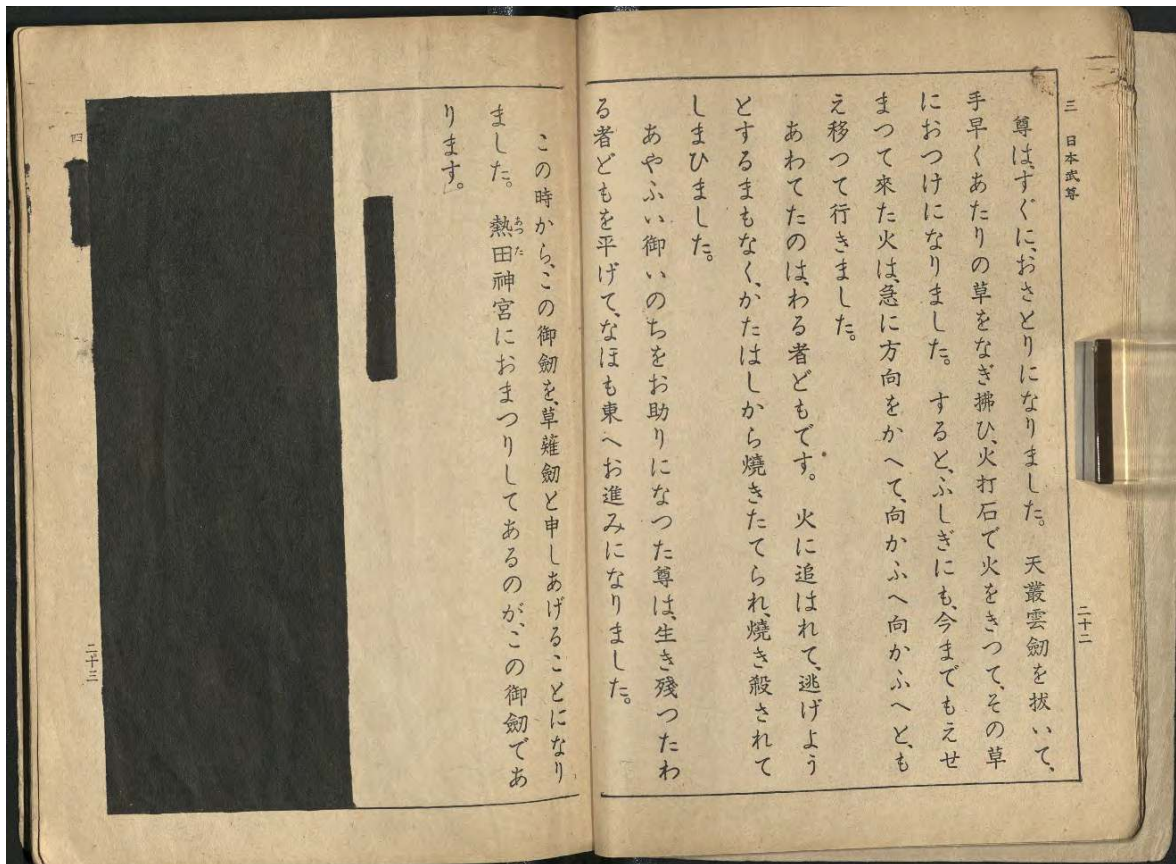 三 日本武尊
二十二
尊は、すぐに、おさとりになりました。 天叢雲劒を拔いて、
手早くあたりの草をなぎ拂ひ、火打石で火をきつて、その草
におつけになりました。 すると、ふしぎにも、今までもえせ
まつて來た火は、急に方向をかへて、向かふへ向かふへと、も
え移つて行きました。
あわてたのは、わる者どもです。 火に追はれて、逃げよう
とするまもなく、かたはしから燒きたてられ、燒き殺されて
しまひました。
あやふい御いのちをお助りになつた尊は、生き殘つたわ
る者どもを平げて、なほも東へお進みになりました。
この時から、この御劒を、草薙劒と申しあげることになり
ました。 熱田神宮におまつりしてあるのが、この御劒であ
あつた
ります。
四
二十三